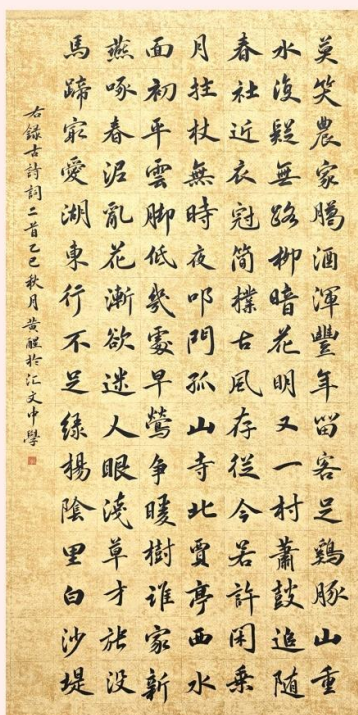 莫笑農家臘酒渾豐年留客足鷄豚山重
水復疑無路柳暗花明又一村蕭鼓追隨
春社近衣冠簡樸古風存從今若許閑乘
月拄杖無時夜叩門孤山寺北賈亭西水
面初平雲脚低幾處早鶯争暖樹誰家新
燕啄春泥亂花漸欲迷人眼淺草才能没
馬蹄最愛湖東行不足綠楊陰里白沙堤
右錄古詩詞二首乙巳秋月黄醒於汇文中學